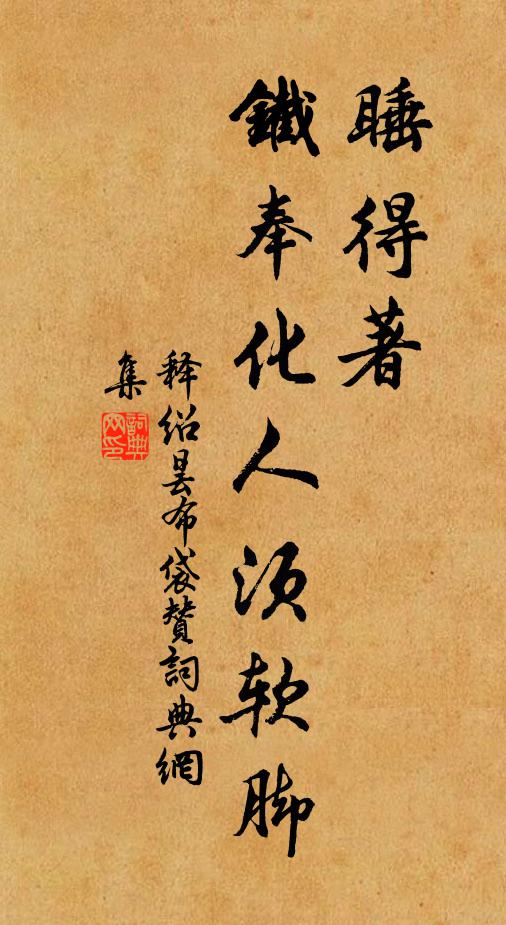 睡得著
鐵奉化人须软脚
释绍昙布袋赞詞典網
集
詞典
网印